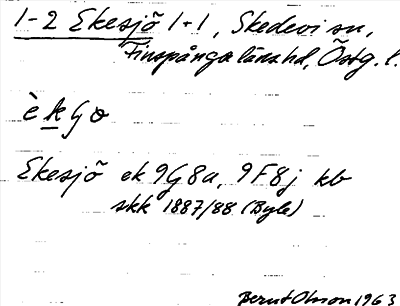 1-2 Ekesjö 1+1, Skedevi sn,
Finspånga länshd, Östg. l.
Ekesjö ek 9G8a, 9F8j kb
skk 1887/88 (Byle)
Bernt Olsson 1963